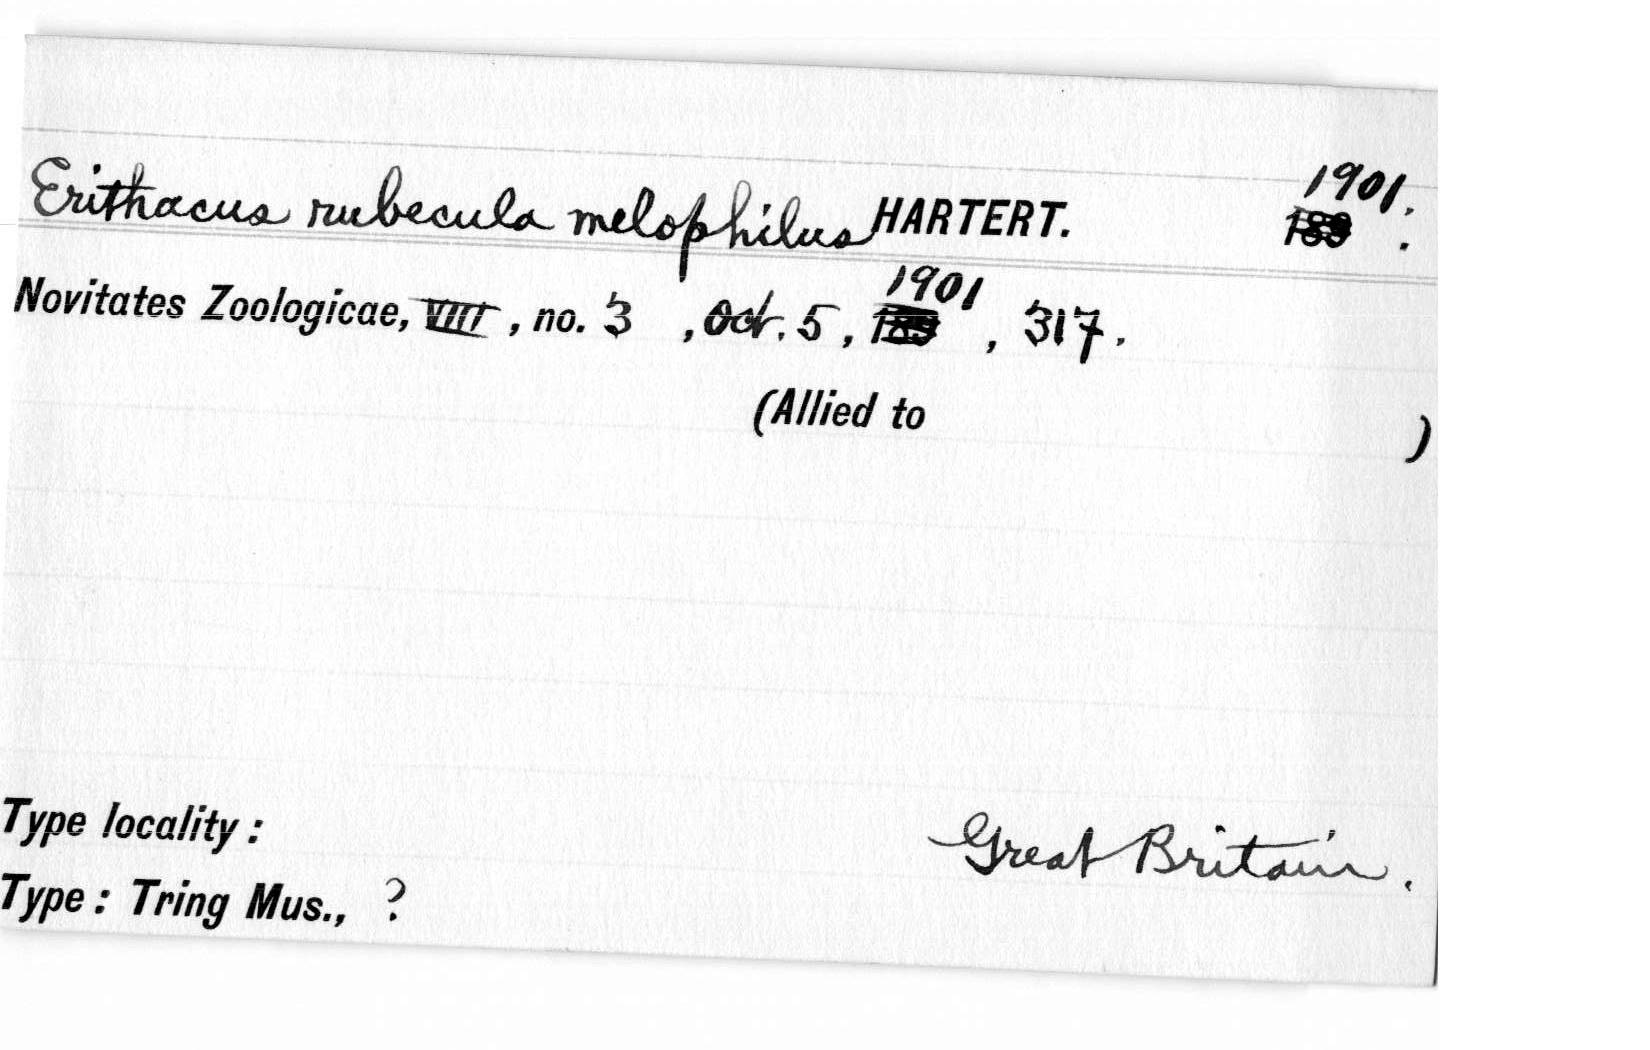 Erithacus rubecula melophilus HARTERT. 1901.
189 .
Novitates Zoologicae, VIII, no. 3 , Oct. 5, 189 1901, 317.
(Allied to )
Type locality: Great Britain.
Type: Tring Mus., ?